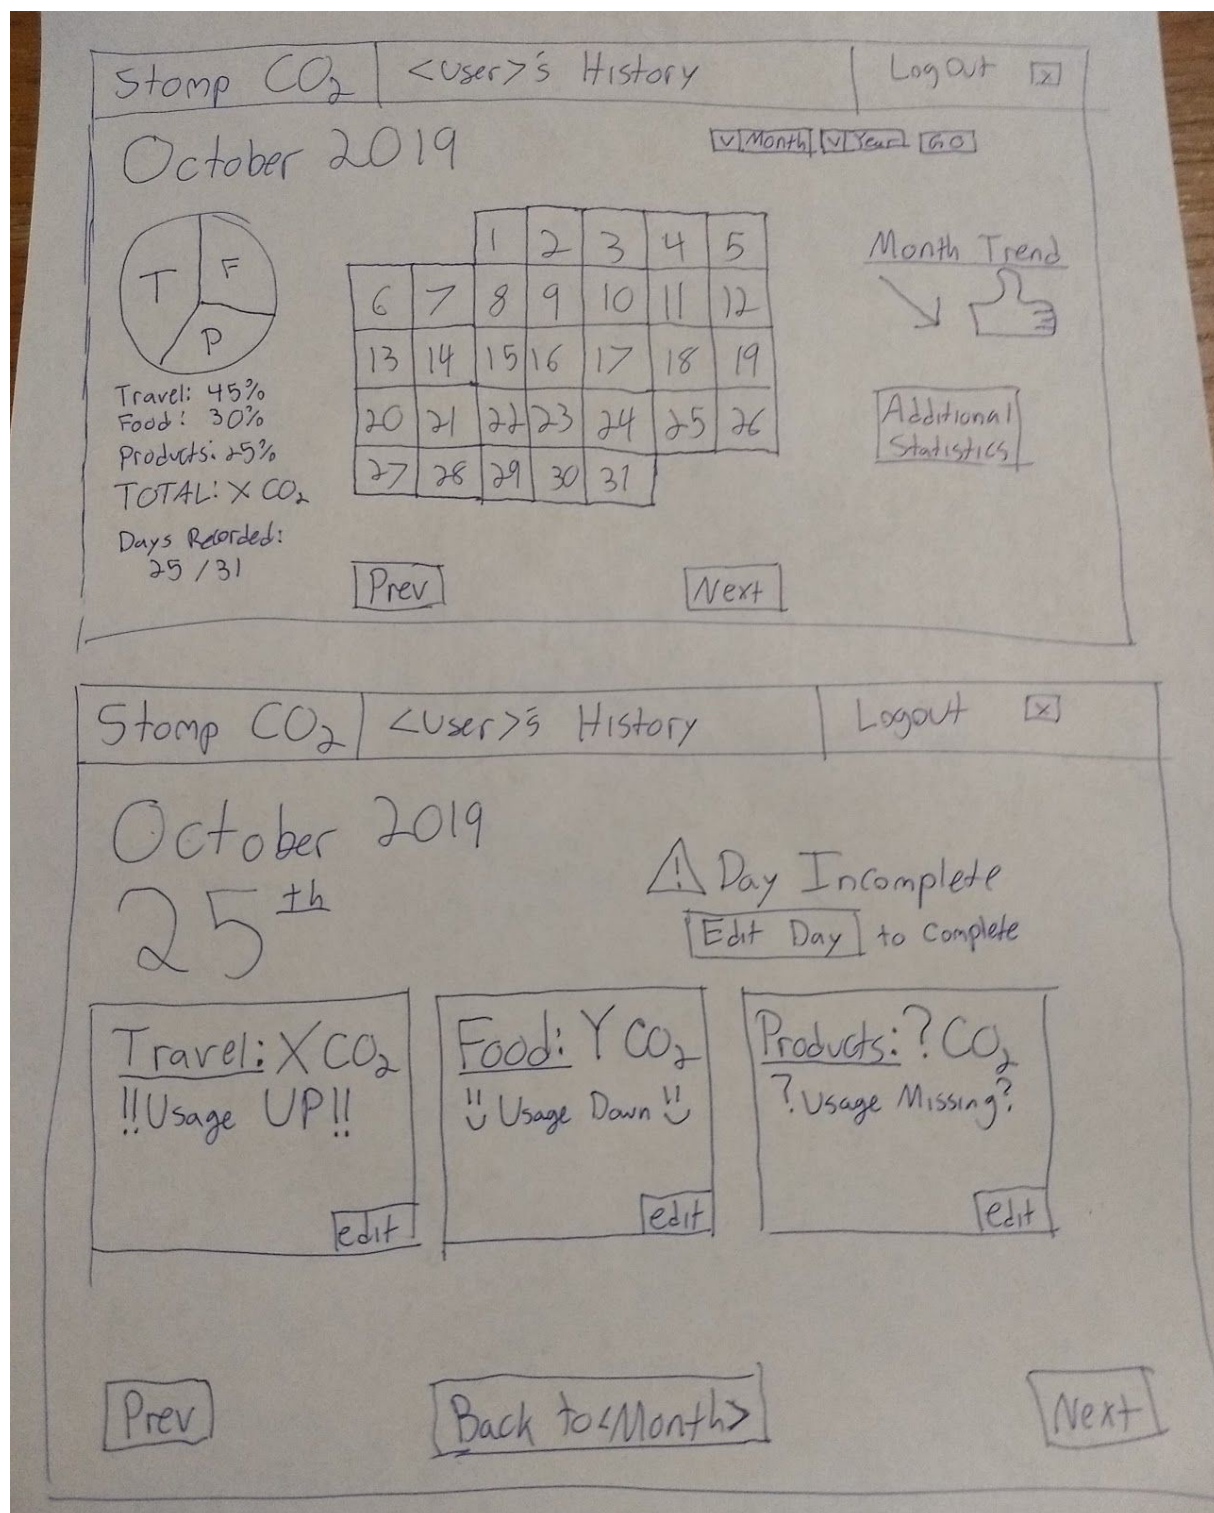 Stomp CO₂ <User>'s History LogOut x
October 2019 v Month v Year GO
T F P
Travel: 45%
Food: 30%
Products: 25%
TOTAL: X CO₂
Days Recorded:
25 / 31
1 2 3 4 5
6 7 8 9 10 11 12
13 14 15 16 17 18 19
20 21 22 23 24 25 26
27 28 29 30 31
Month Trend
Additional
Statistics
Prev Next
Stomp CO₂ <User>'s History Logout x
October 2019
25th
! Day Incomplete
Edit Day to complete
Travel: X CO₂
!!Usage UP!!
edit
Food: Y CO₂
Usage Down
edit
Products: ? CO₂
? Usage Missing?
edit
Prev Back to <Month> Next